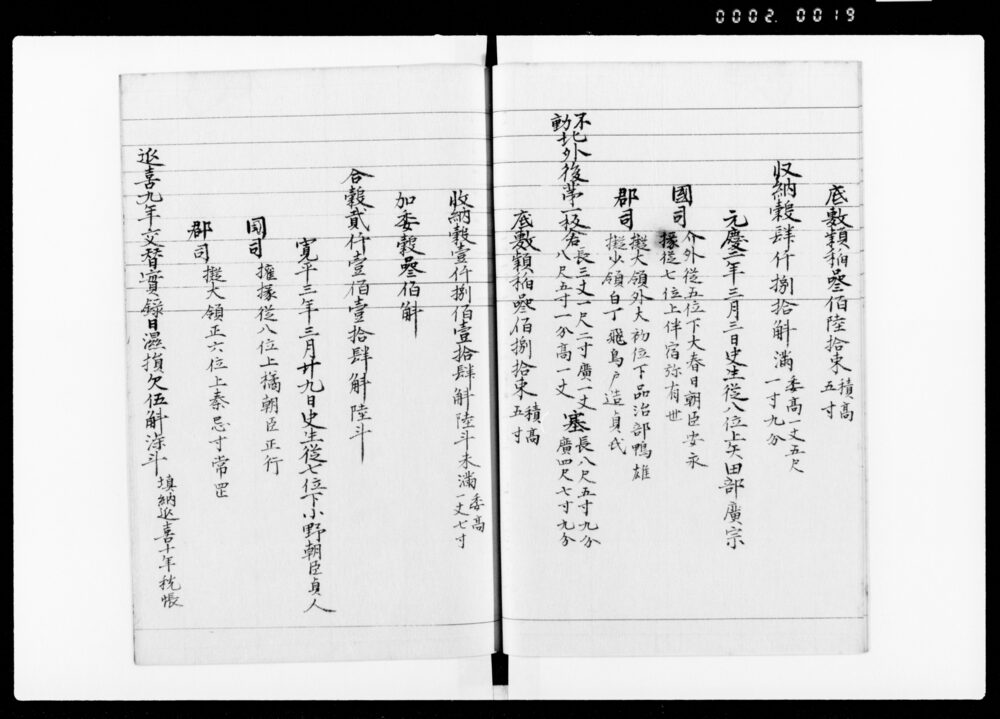 0002.0019
底敷穎稲叄佰陸拾束積高五寸
収納穀肆仟捌拾斛満委高一丈五尺一寸九分
元慶二年三月三日史生従八位上矢田部廣宗
國司介外従五位下大春日朝臣安永
掾従七位上伴宿祢有世
郡司擬大領外大初位下品治部鴨雄
擬少領白丁飛鳥戸造貞氏
不動北外後第一板倉長三丈一尺二寸廣一丈八尺五寸一分高一丈塞長八尺五寸九分廣四尺七寸九分
底敷穎稲叄佰捌拾束積高五寸
収納穀壹仟捌佰壹拾肆斛陸斗未満委高一丈七寸
加委穀叄佰斛
合穀貳仟壹佰壹拾肆斛陸斗
寛平三年三月廿九日史生従七位下小野朝臣貞人
國司權掾従八位上橘朝臣正行
郡司擬大領正六位上秦忌寸常罡
延喜九年交替實録日濕損欠伍斛柒斗填納延喜十年税帳